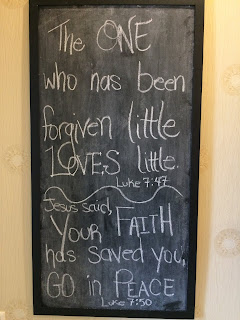 The ONE
who has been
forgiven little
LOVES little.
Luke 7:47
Jesus said,
YOUR FAITH
has saved you;
GO in PEACE
Luke 7:50